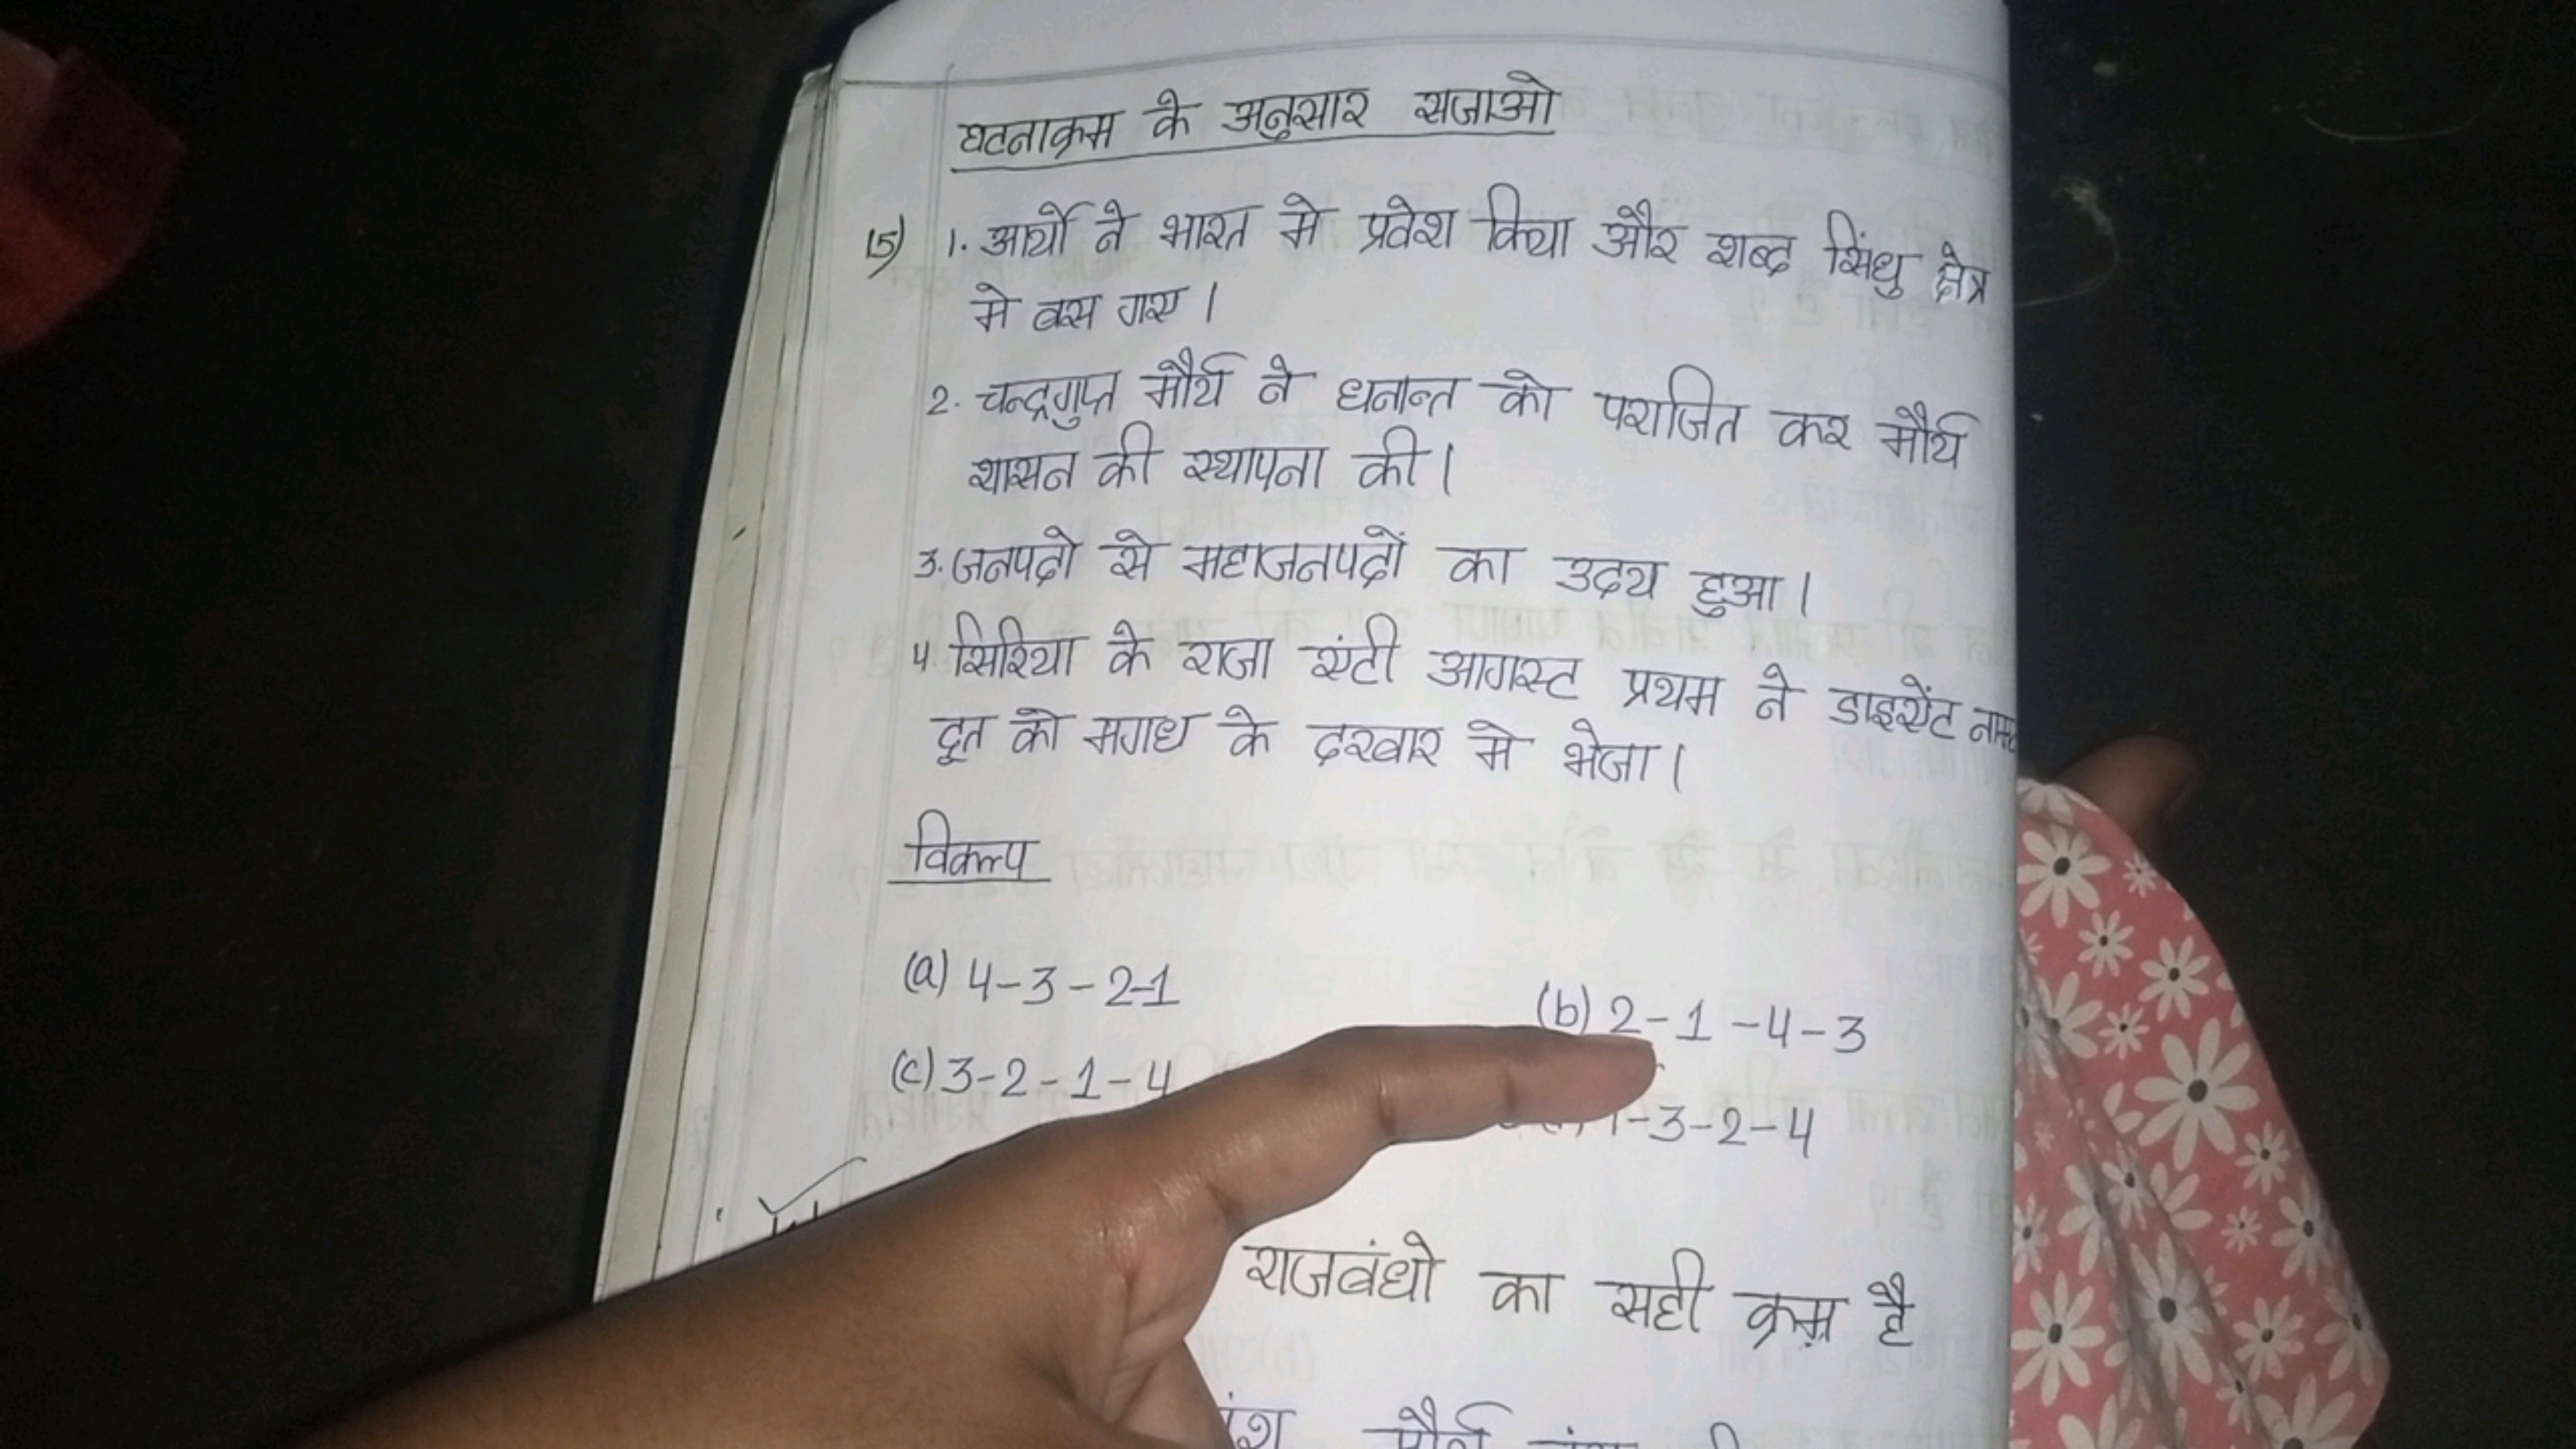 घटनाक्रम के अनुसार सजाओ
15) 1. आर्यो ने भारत मे प्रवेश किया और शब्द सिंधु क्षेत्र
मे बस गए ।
2. चन्द्रगुप्त मौर्य ने धनान्त को पराजित कर मौर्य
शासन की स्थापना की।
3. जनपदो से महाजनपदों का उदय हुआ।
4. सिरिया के राजा एंटी आगस्ट प्रथम ने डाइऐंट
दूत को मगध के दरबार मे भेजा।
विकल्प
(a) 4-3-2-1
(b) 2-1-4-3
(c) 3-2-1-4
1-3-2-4
राजबंधो का सही क्रम है